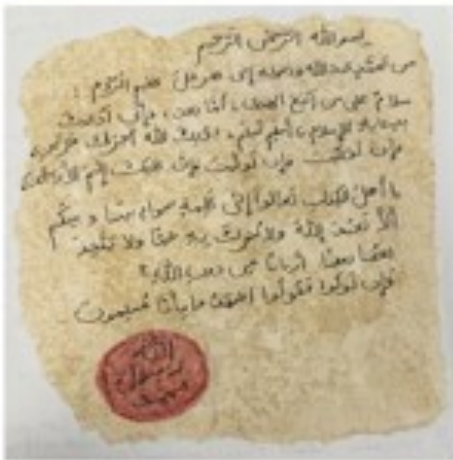 بسم الله الرحمن الرحيم
من محمد عبد الله ورسوله إلى هرقل عظيم الروم :
سلام على من اتبع الهدى ، أما بعد ، فإني أدعوك
بدعاية الإسلام ، أسلم تسلم ، يؤتك الله أجرك مرتين ،
فإن توليت فإن عليك إثم
يا أهل الكتاب تعالوا إلى كلمة سواء بيننا وبينكم
ألا نعبد إلا الله ولا نشرك به شيئا ولا يتخذ
بعضنا بعضا أربابا من دون الله
فإن تولوا فقولوا اشهدوا بأنا مسلمون
الله
رسول
محمد